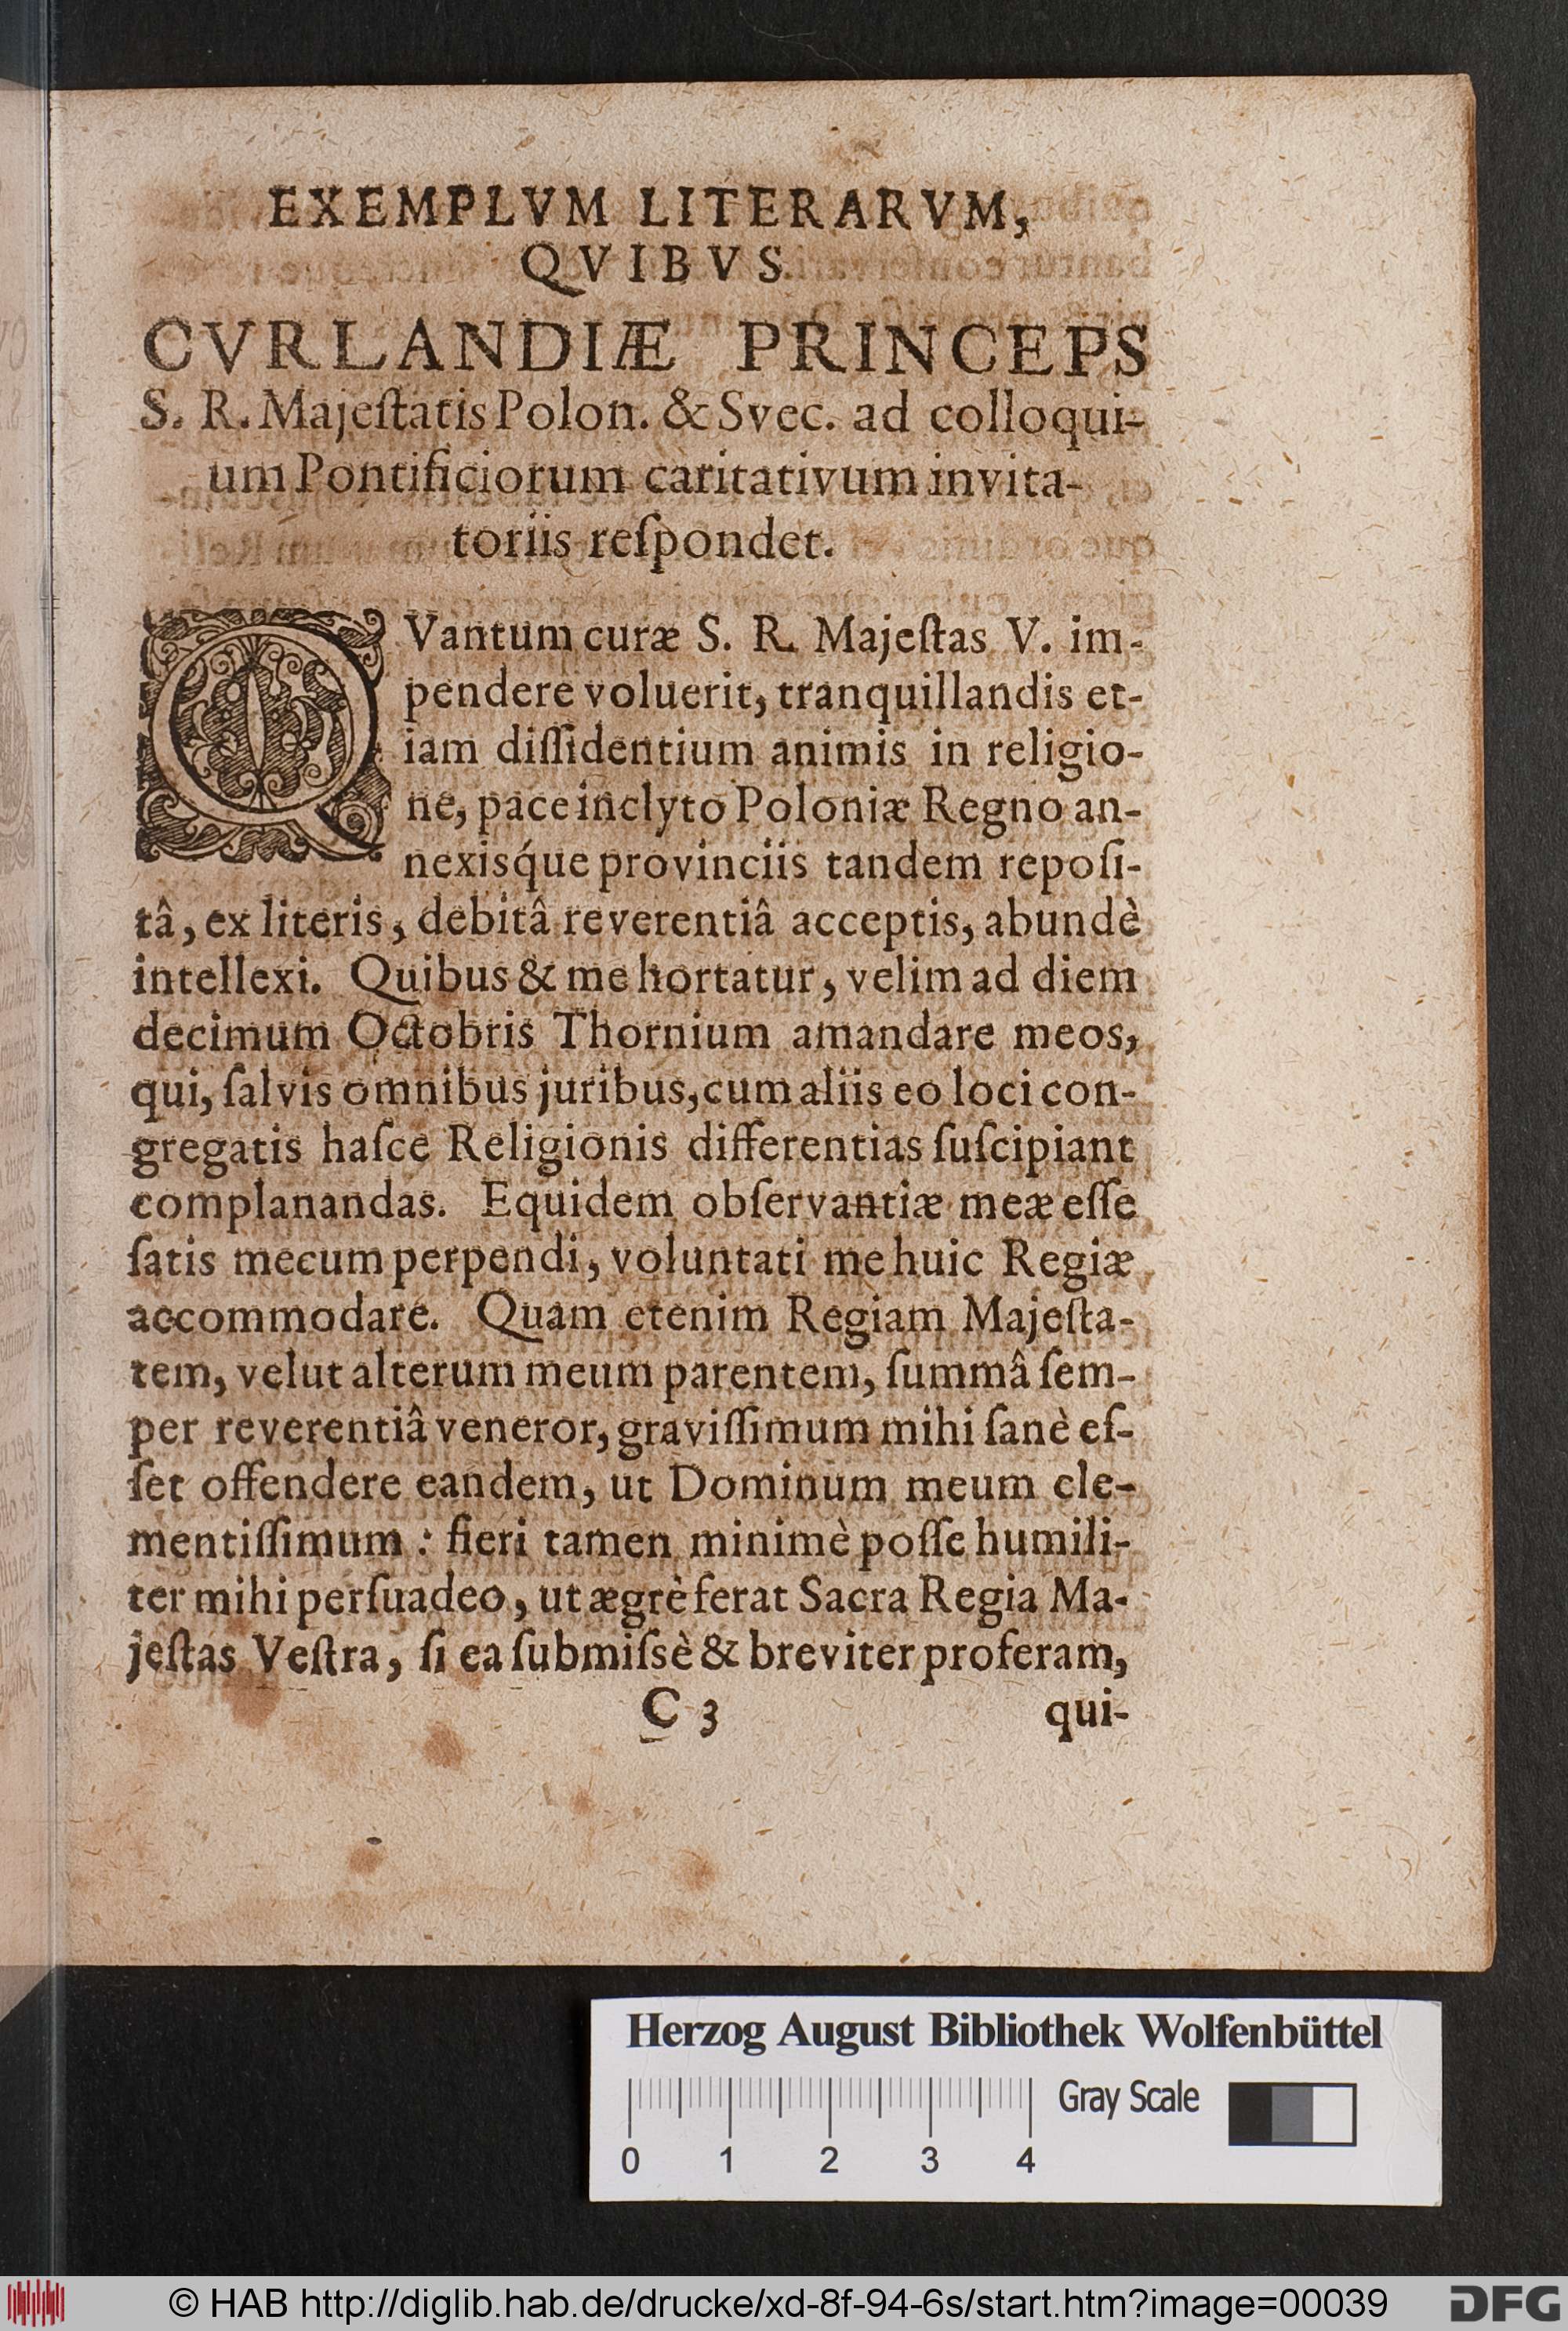 EXEMPLVM LITERARVM,
QVIBVS
CVRLANDIÆ PRINCEPS
S. R. Majeſtatis Polon. & Svec. ad colloqui-
um Pontificiorum caritativum invita-
toriis reſpondet.
QVantum curæ S. R. Majeſtas V. im-
pendere voluerit, tranquillandis et-
iam diſſidentium animis in religio-
ne, pace inclyto Poloniæ Regno an-
nexisq́ue provinciis tandem repoſi-
tâ, ex literis, debitâ reverentiâ acceptis, abundè
intellexi. Quibus & me hortatur, velim ad diem
decimum Octobris Thornium amandare meos,
qui, ſalvis omnibus juribus, cum aliis eo loci con-
gregatis haſce Religionis differentias ſuſcipiant
complanandas. Equidem obſervantiæ meæ eſſe
ſatis mecum perpendi, voluntati me huic Regiæ
accommodare. Quam etenim Regiam Majeſta-
tem, velut alterum meum parentem, ſummâ ſem-
per reverentiâ veneror, graviſſimum mihi ſanè eſ-
ſet offendere eandem, ut Dominum meum cle-
mentiſſimum : fieri tamen minimè poſſe humili-
ter mihi perſuadeo, ut ægrè ferat Sacra Regia Ma-
jeſtas Veſtra, ſi ea ſubmiſsè & breviter proferam,
C 3 qui-
Herzog August Bibliothek Wolfenbüttel
Gray Scale
0 1 2 3 4
© HAB http://diglib.hab.de/drucke/xd-8f-94-6s/start.htm?image=00039
DFG